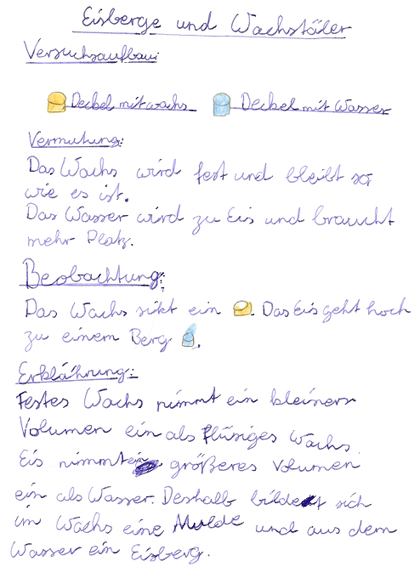 Eisberge und Wachstäler
Versuchsaufbau:
Deckel mit wachs Deckel mit Wasser
Vermutung:
Das Wachs wird fest und bleibt so
wie es ist.
Das Wasser wird zu Eis und braucht
mehr Platz.
Beobachtung:
Das Wachs sikt ein . Das Eis geht hoch
zu einem Berg .
Erklährung:
Festes Wachs nimmt ein kleiners
Volumen ein als flüsiges Wachs.
Eis nimmt ein größeres Volumen
ein als Wasser. Deshalb bildet sich
im Wachs eine Mulde und aus dem
Wasser ein Eisberg.